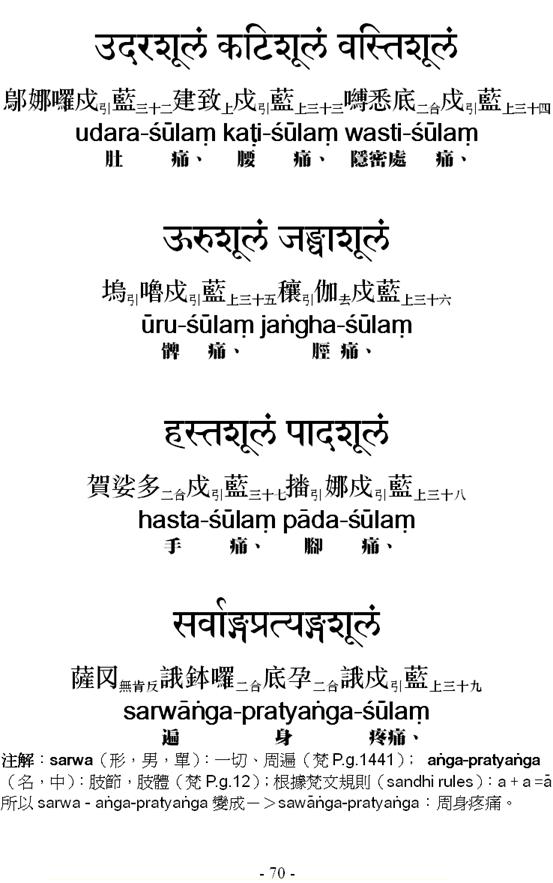 उदरशूलं कटिशूलं वस्तिशूलं
鄔娜囉戍引藍三十二建致上戍引藍上三十三嚩悉底二合戍引藍上三十四
udara-śūlaṃ kaṭi-śūlaṃ wasti-śūlaṃ
肚 痛、 腰 痛、 隱密處 痛、
ऊरुशूलं जङ्घाशूलं
塢引嚕戍引藍上三十五穰引伽去戍藍上三十六
ūru-śūlaṃ jaṅgha-śūlaṃ
髀 痛、 脛 痛、
हस्तशूलं पादशूलं
賀娑多二合戍引藍三十七播引娜戍引藍上三十八
hasta-śūlaṃ pāda-śūlaṃ
手 痛、 腳 痛、
सर्वाङ्गप्रत्यङ्गशूलं
薩冈無肯反誐鉢囉二合底孕二合誐戍引藍上三十九
sarwāṅga-pratyaṅga-śūlaṃ
遍 身 疼痛、
注解：sarwa（形，男，單）：一切、周遍（梵 P.g.1441）； aṅga-pratyaṅga
（名，中）：肢節，肢體（梵 P.g.12）；根據梵文規則（sandhi rules）：a + a =ā
所以 sarwa - aṅga-pratyaṅga 變成－＞sawāṅga-pratyaṅga：周身疼痛。
- 70 -